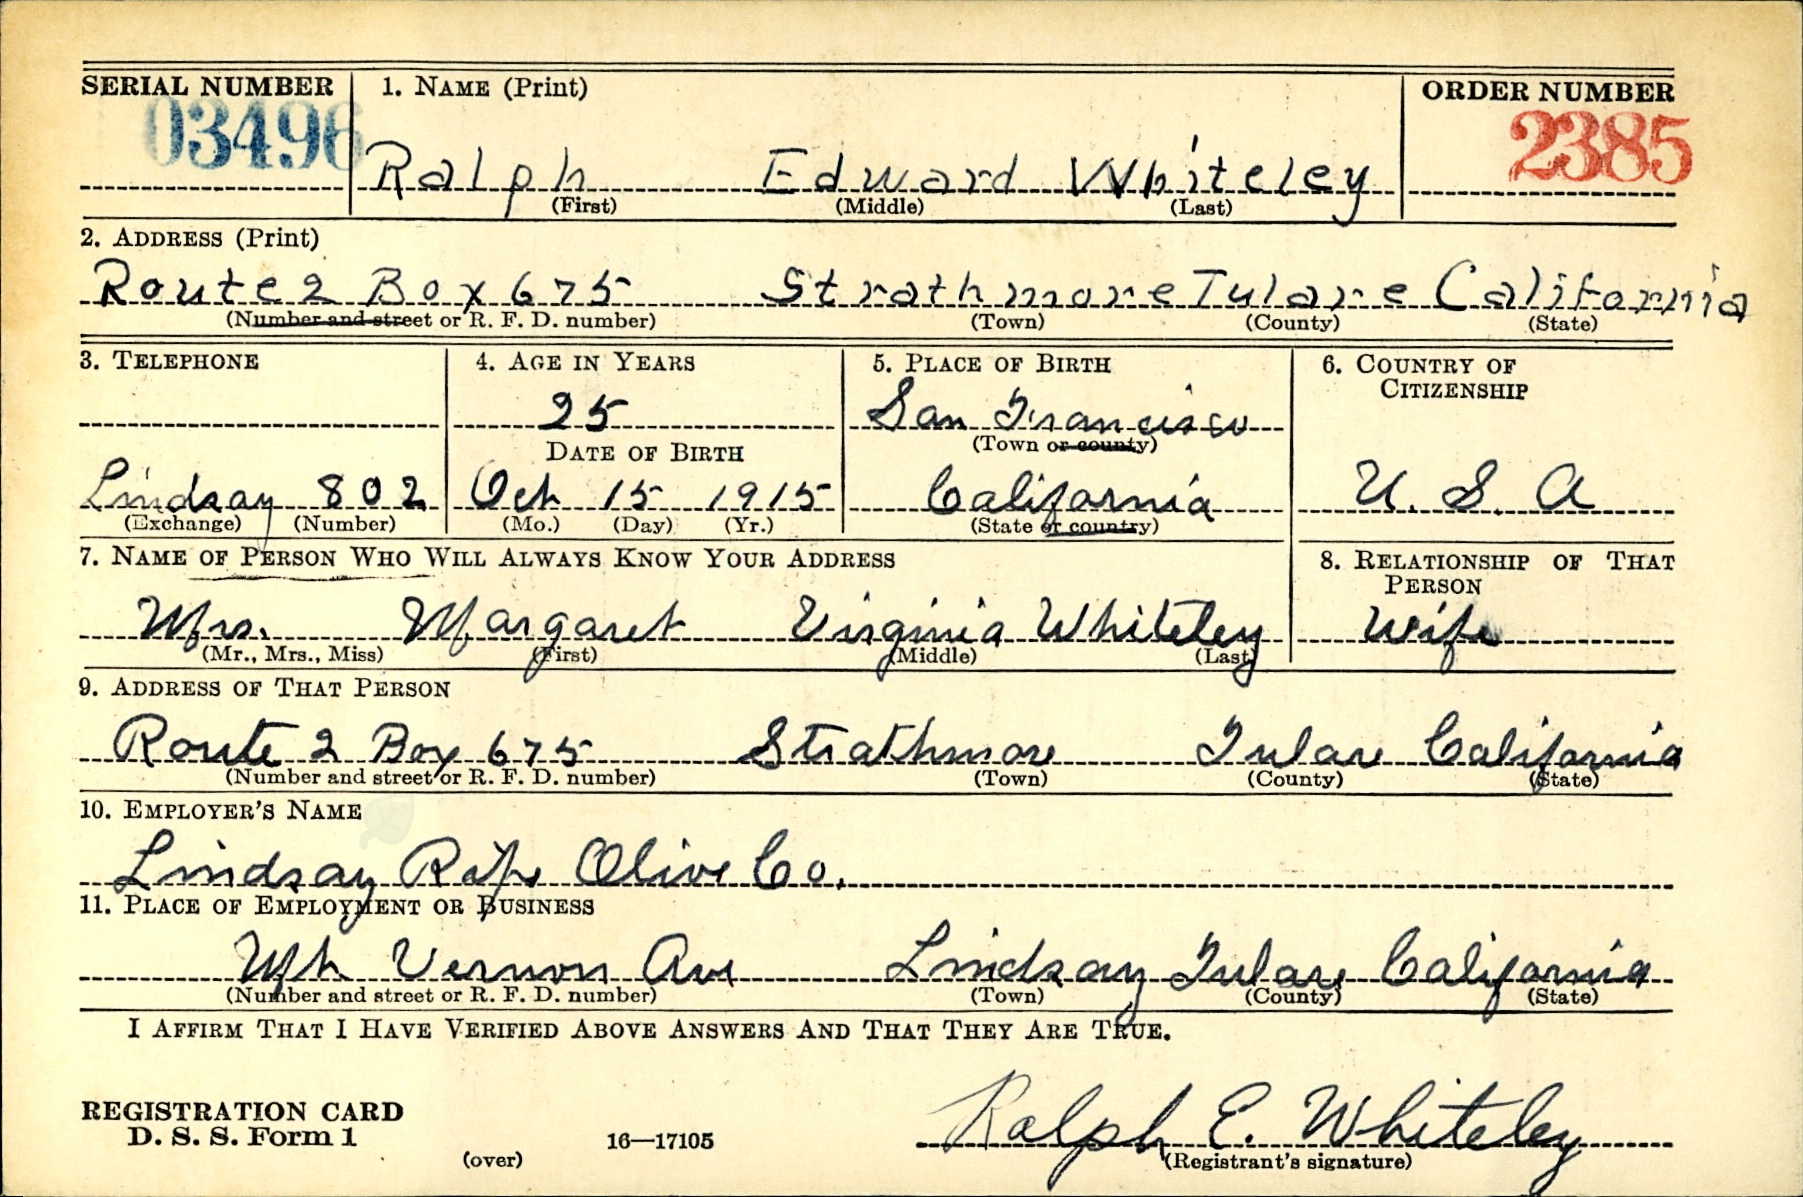 SERIAL NUMBER 1. NAME (Print) ORDER NUMBER
03496 Ralph Edward Whiteley 2385
(First) (Middle) (Last)
2. ADDRESS (Print)
Route 2 Box 675 Strathmore Tulare California
(Number and street or R. F. D. number) (Town) (County) (State)
3. TELEPHONE 4. AGE IN YEARS 5. PLACE OF BIRTH 6. COUNTRY OF
CITIZENSHIP
25 San Francisco
DATE OF BIRTH (Town or county)
Lindsay 802 Oct 15 1915 California U. S. A
(Exchange) (Number) (Mo.) (Day) (Yr.) (State or country)
7. NAME OF PERSON WHO WILL ALWAYS KNOW YOUR ADDRESS 8. RELATIONSHIP OF THAT
PERSON
Mrs. Margaret Virginia Whiteley Wife
(Mr., Mrs., Miss) (First) (Middle) (Last)
9. ADDRESS OF THAT PERSON
Route 2 Box 675 Strathmore Tulare California
(Number and street or R. F. D. number) (Town) (County) (State)
10. EMPLOYER'S NAME
Lindsay Ripe Olive Co.
11. PLACE OF EMPLOYMENT OR BUSINESS
Mt Vernon Ave Lindsay Tulare California
(Number and street or R. F. D. number) (Town) (County) (State)
I AFFIRM THAT I HAVE VERIFIED ABOVE ANSWERS AND THAT THEY ARE TRUE.
REGISTRATION CARD
D. S. S. Form 1 16—17105 Ralph E. Whiteley
(over) (Registrant's signature)